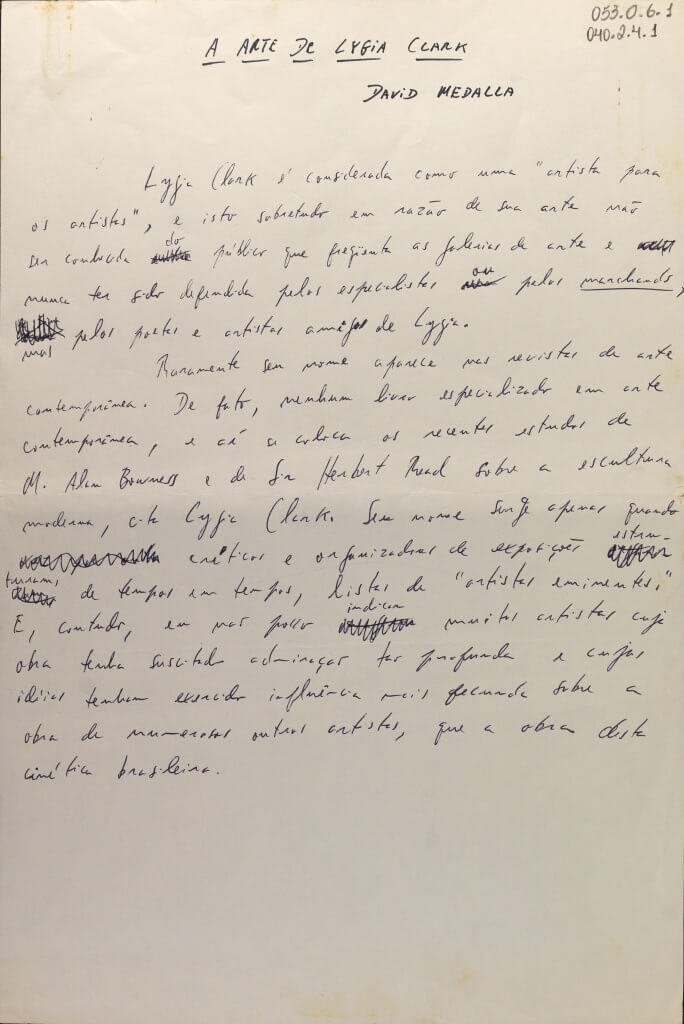 053.0.6.1
040.2.4.1
A ARTE DE LYGIA CLARK
DAVID MEDALLA
Lygia Clark é considerada como uma "artista para
os artistas", e isto sobretudo em razão de sua arte não
ser conhecida do público que freqüenta as galerias de arte e
nunca ter sido defendida pelos especialistas ou pelos marchands,
mas pelos poetas e artistas amigos de Lygia.
Raramente seu nome aparece nas revistas de arte
contemporânea. De fato, nenhum livro especializado em arte
contemporânea, e aí se coloca os recentes estudos de
M. Alan Bowness e de Sir Herbert Read sobre a escultura
moderna, cita Lygia Clark. Seu nome surge apenas quando
críticos e organizadores de exposições estru-
turam, de tempos em tempos, listas de "artistas eminentes."
E, contudo, eu não posso indicar muitos artistas cuja
obra tenha suscitado admiração tão profunda e cujas
idéias tenham exercido influência mais fecunda sobre a
obra de numerosos outros artistas, que a obra desta
cinética brasileira.